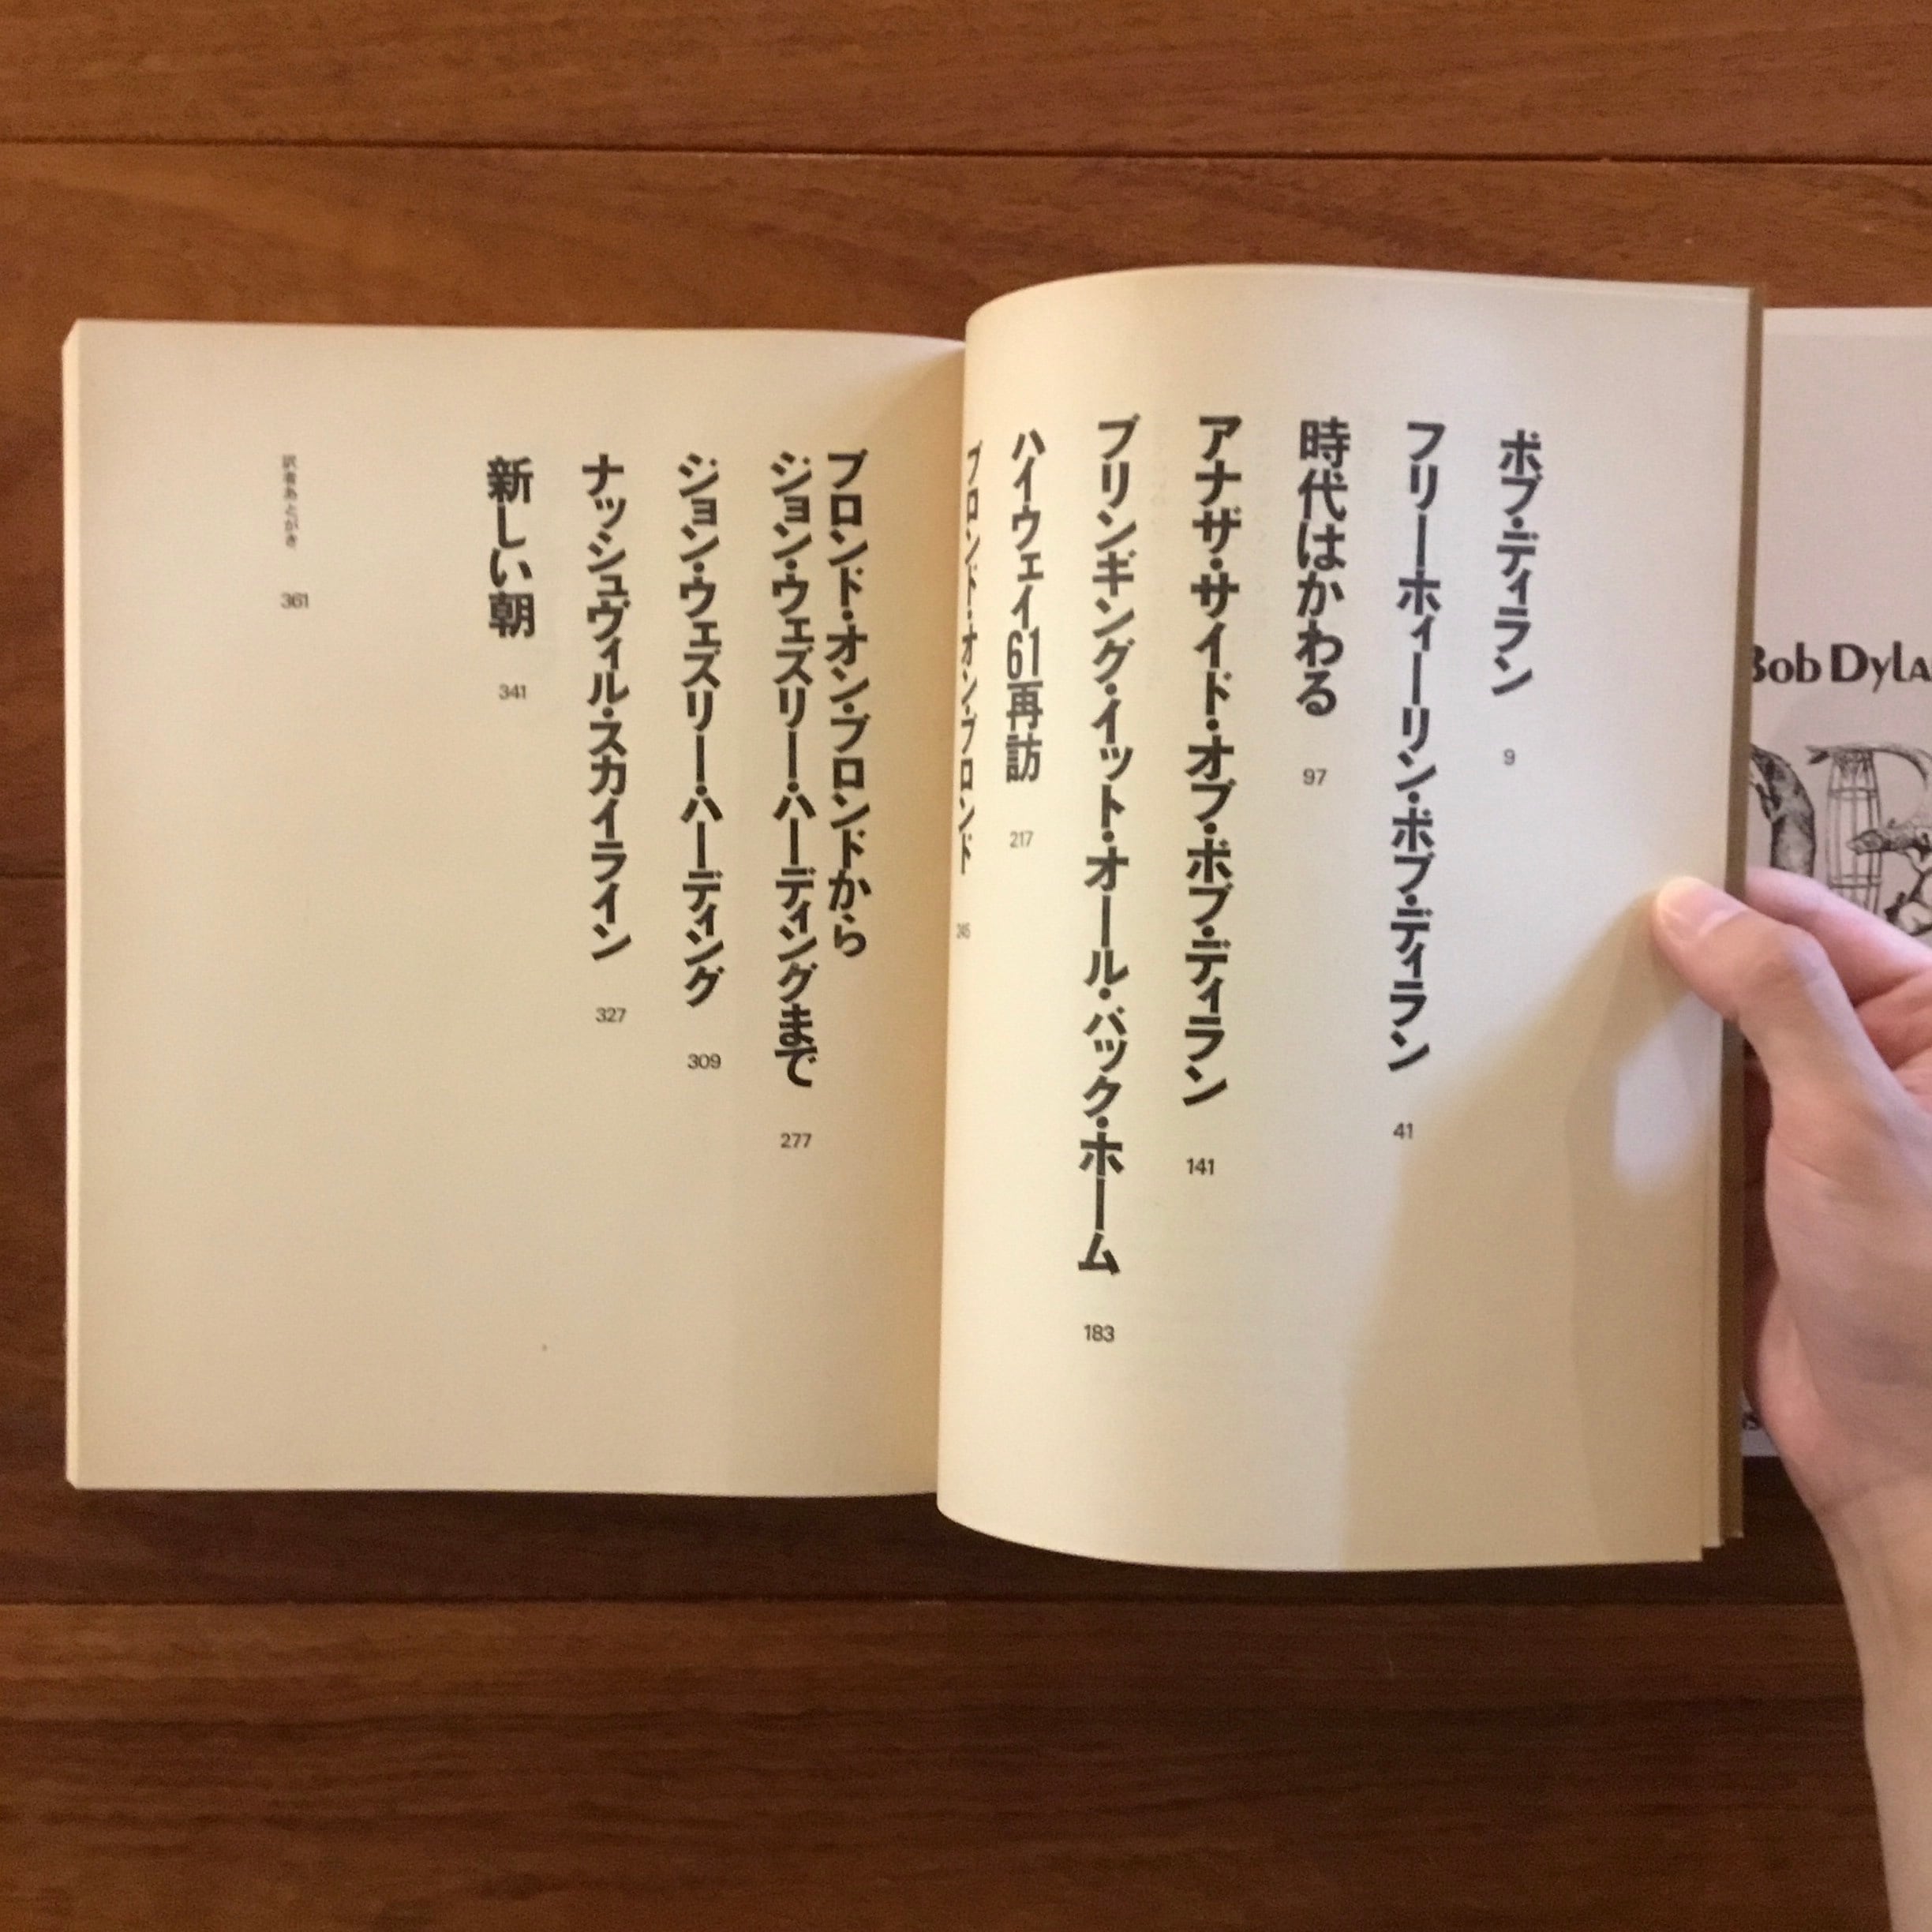 ボブ・ディラン 9
フリーホィーリン・ボブ・ディラン 41
時代はかわる 97
アナザ・サイド・オブ・ボブ・ディラン 141
ブリンギング・イット・オール・バック・ホーム 183
ハイウェイ61再訪 217
ブロンド・オン・ブロンド 245
ブロンド・オン・ブロンドから
ジョン・ウェズリー・ハーディングまで 277
ジョン・ウェズリー・ハーディング 309
ナッシュヴィル・スカイライン 327
新しい朝 341
訳者あとがき 361
Bob Dyla